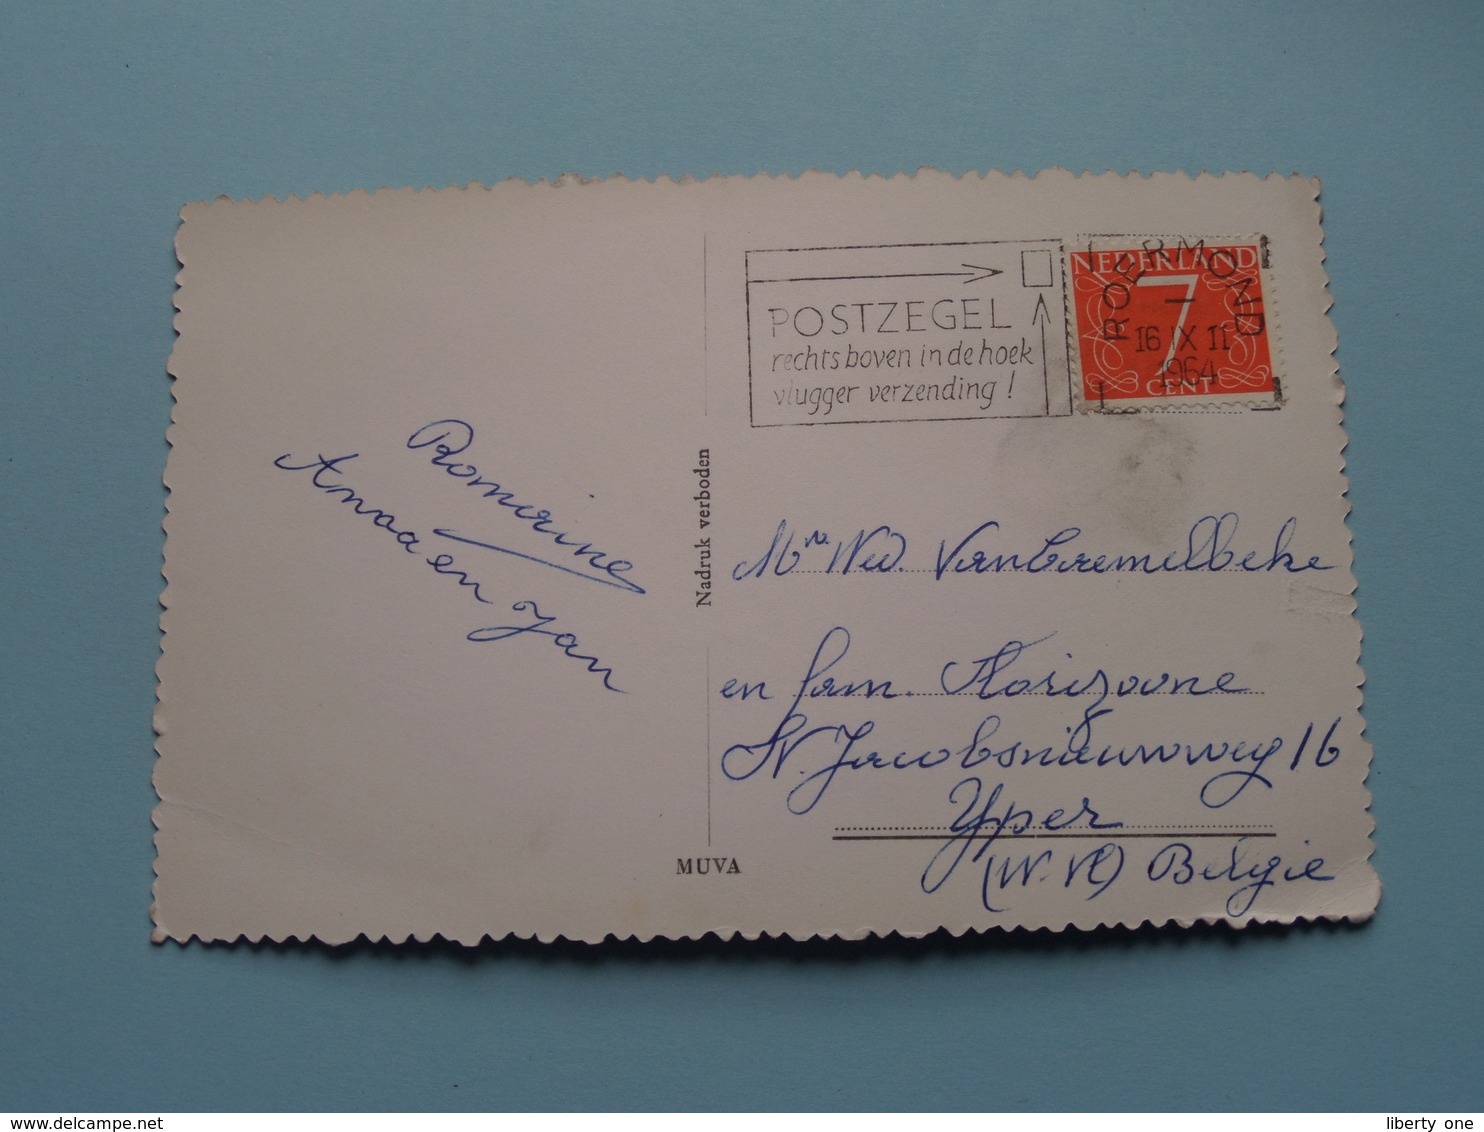 POSTZEGEL
rechts boven in de hoek
vlugger verzending!
NEDERLAND
7
CENT
ROERMOND
16 IX 11
1964
Romaine
Anna en Jan
Nadruk verboden
Mra Wed. Vanbremelbeke
en fam. Florizoone
St. Jacobsnieuwweg 16
Yper
(W. Vl) België
MUVA
www.delcampe.net
liberty_one